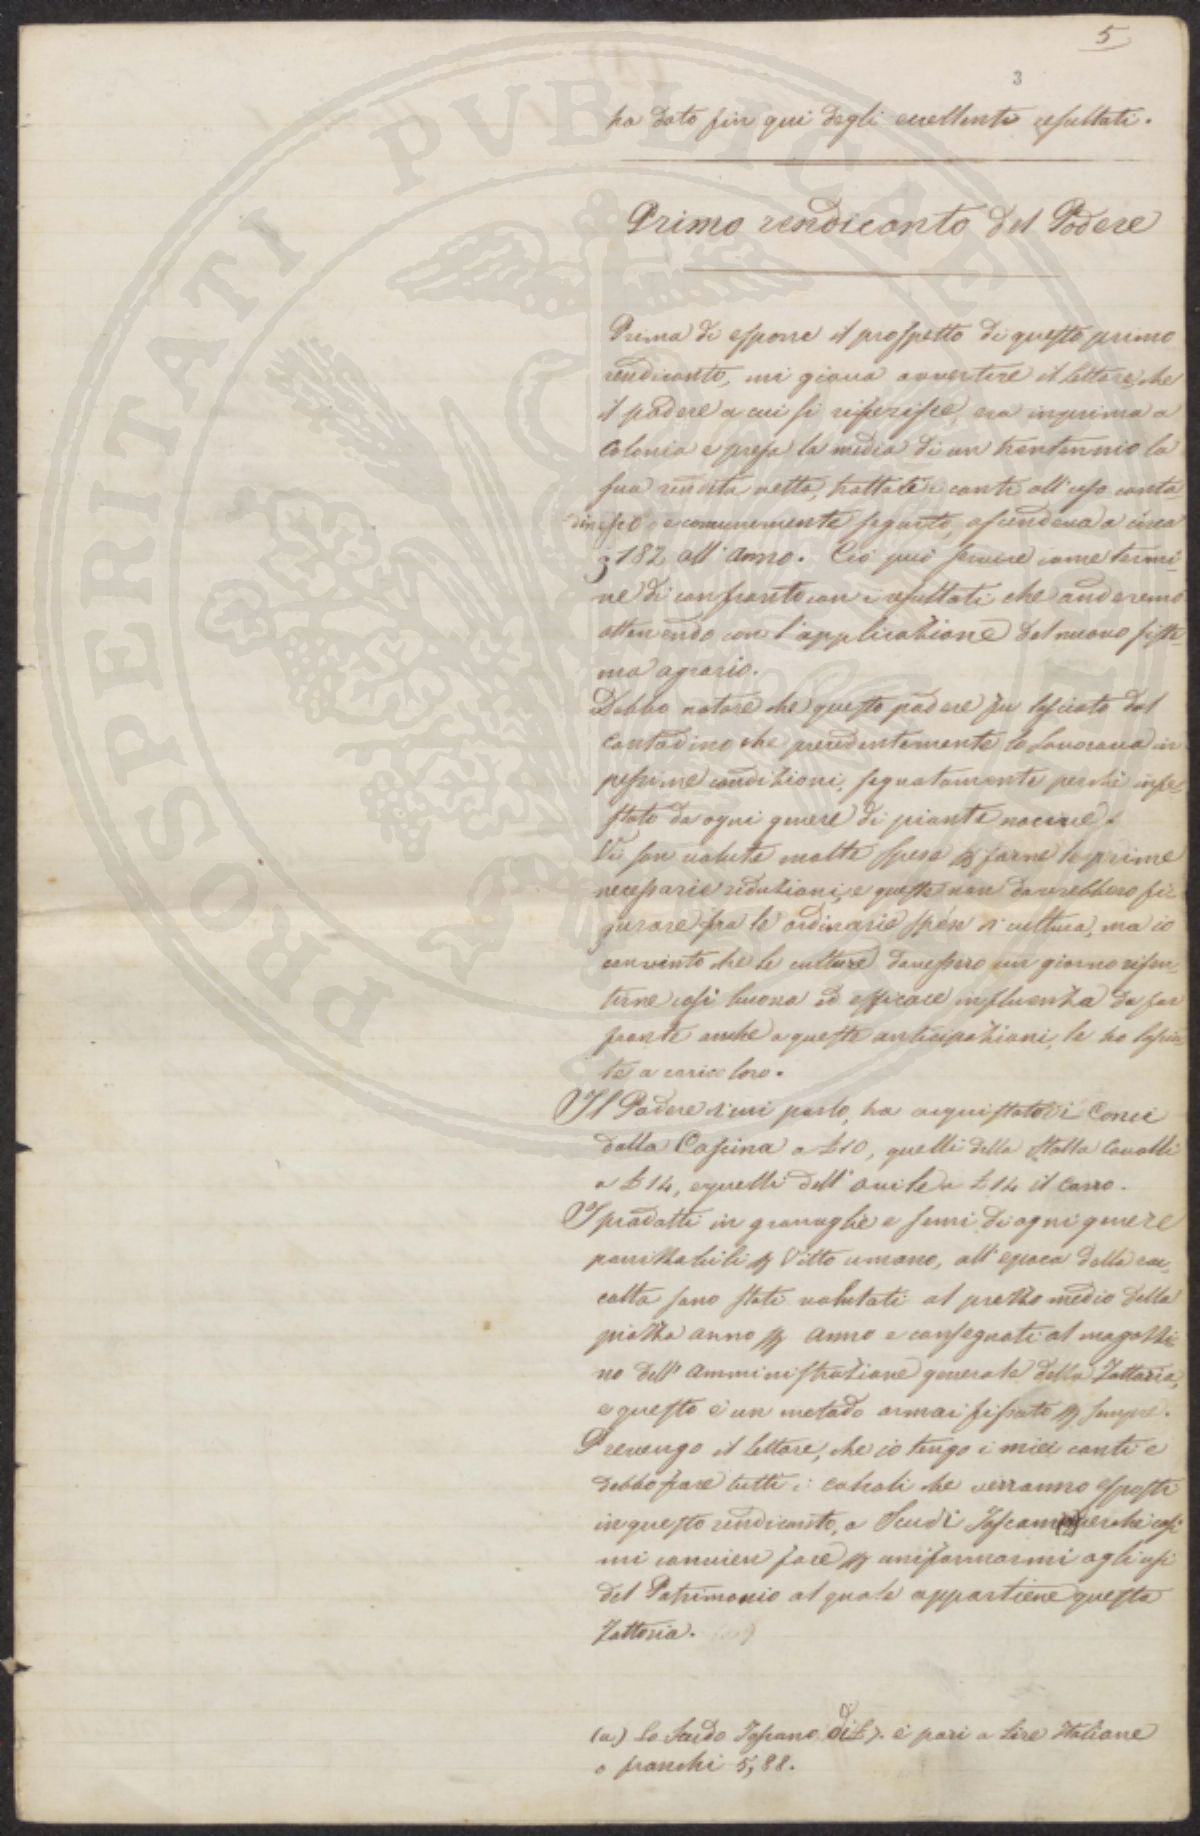 5
3
ha dato fin qui degli eccellenti resultati.
Primo rendiconto del Podere
Prima di esporre il prospetto di questo primo
rendiconto, mi giova avvertire il lettore, che
il podere a cui si riferisce, era inprima a
Colonia e presa la media di un trentennio la
sua rendita netta, trattati i conti all'uso conta-
dinesco e comunemente seguito, ascendeva a circa
182 all'anno. Ciò può servire come termi-
ne di confronto con i resultati che anderemo
ottenendo con l'applicazione del nuovo siste-
ma agrario.
Debbo notare che questo podere fu lasciato dal
Contadino che precedentemente lo lavorava in
pessime condizioni, segnatamente perchè infe-
stato da ogni genere di piante nocive.
Vi son volute molte spese p farne le prime
necessarie riduzioni, e queste non dovrebbero fi-
gurare fra le ordinarie spese di cultura, ma io
convinto che le culture dovessero un giorno risen-
tirne così buona ed efficace influenza da far
fronte anche a queste anticipazioni, le ho lascia-
te a carico loro.
Il Podere di cui parlo, ha acquistato i Conci
dalla Cascina a £10, quelli della stalla Cavalli
a £14, e quelli dell'ovile a £14 il carro.
I prodotti in granaglie e semi di ogni genere
panizzabili p Vitto umano, all'epoca della rac-
colta sono stati valutati al prezzo medio della
piazza anno p anno e consegnati al magazzi-
no dell'Amministrazione generale della Fattoria,
e questo è un metodo ormai fissato p sempre.
Prevengo il lettore, che io tengo i miei conti e
debbo fare tutti i calcoli che verranno esposti
in questo rendiconto, a Scudi Toscani (a) perchè così
mi convien fare p uniformarmi agli usi
del Patrimonio al quale appartiene questa
Fattoria.
(a) Lo Scudo Toscano di £7. è pari a Lire Italiane
o franchi 5,88.
PROSPERITATI PUBLICAE